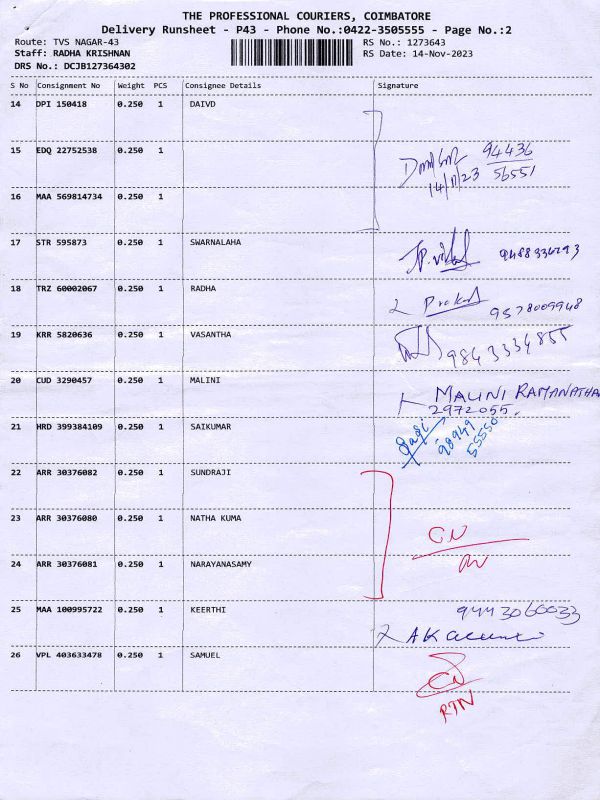 THE PROFESSIONAL COURIERS, COIMBATORE
Delivery Runsheet - P43 - Phone No.:0422-3505555 - Page No.:2
Route: TVS NAGAR-43 RS No.: 1273643
Staff: RADHA KRISHNAN RS Date: 14-Nov-2023
DRS No.: DCJB127364302
S No Consignment No Weight PCS Consignee Details Signature
14 DPI 150418 0.250 1 DAIVD
15 EDQ 22752538 0.250 1 94436
14/11/23 56551
16 MAA 569814734 0.250 1
17 STR 595873 0.250 1 SWARNALAHA
18 TRZ 60002067 0.250 1 RADHA
9578009948
19 KRR 5820636 0.250 1 VASANTHA
9843334855
20 CUD 3290457 0.250 1 MALINI MALINI RAMANATHAN
2972055.
21 HRD 399384109 0.250 1 SAIKUMAR
98949
55550
22 ARR 30376082 0.250 1 SUNDRAJI
23 ARR 30376080 0.250 1 NATHA KUMA
24 ARR 30376081 0.250 1 NARAYANASAMY
25 MAA 100995722 0.250 1 KEERTHI 9443060033
26 VPL 403633478 0.250 1 SAMUEL
RTN